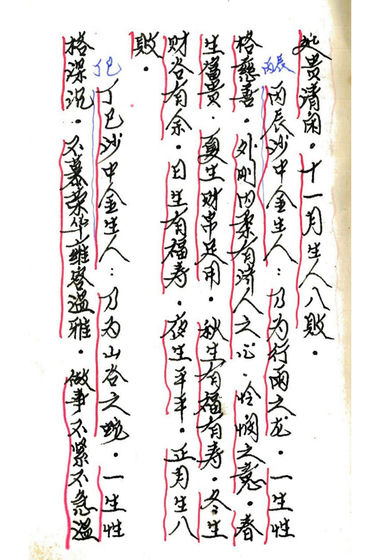 贵清闲。十一月生人八败。
丙辰
丙辰沙中金生人：乃为行雨之龙。一生性
格慈善。外刚内柔有济人之心。怜悯之意。春
生富贵。夏生财帛足用。秋生有福有寿。冬生
财谷有余。日生有福寿。夜生平平。正月生八
败。
丁巳
丁巳沙中金生人：乃为山谷之蛇。一生性
格深沉。不慕荣华雍容温雅。做事不紧不急温